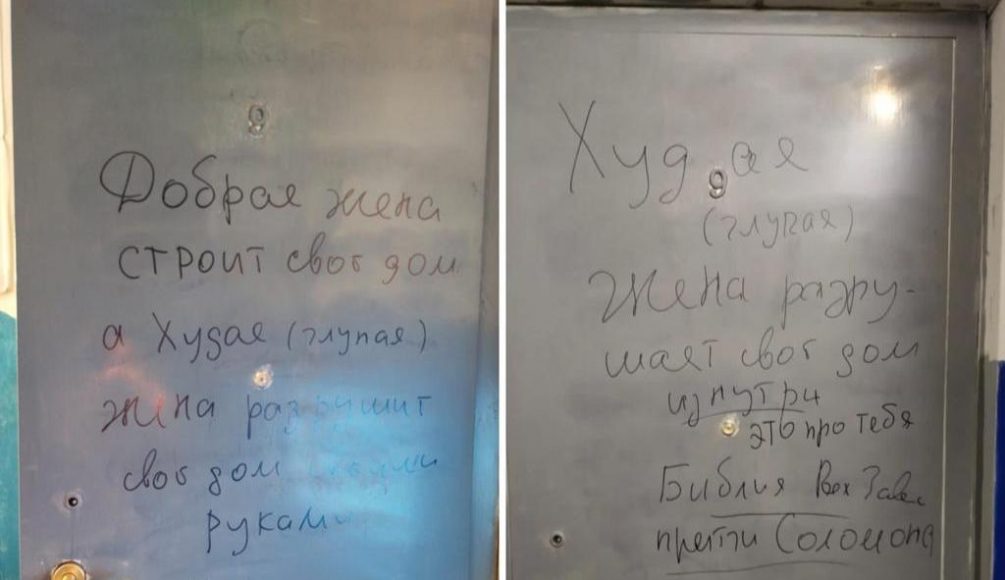 9
Добрая жена
строит свой дом
а Худая (глупая)
жена разрушит
свой дом своими
руками
Худая
9
(глупая)
Жена разру-
шает свой дом
изнутри
это про тебя
Библия Вех Завет
притчи Соломона